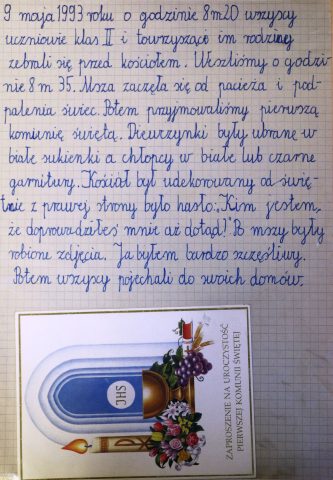 9 maja 1993 roku o godzinie 8 m 20 wszyscy
uczniowie klas II i towrzyszące im rodziny
zebrali się przed kościołem. Weszliśmy o godzi-
nie 8 m 35. Msza zaczęła się od pacieża i pod-
palenia świec. Potem przyjmowaliśmy pierwszą
komunię świętą. Dziewczynki były ubrane w
białe sukienki a chłopcy w białe lub czarne
garnitury. Kościół był udekorowany od świę-
tnie z prawej strony było hasło: „Kim jestem,
że doprowadziłeś mnie aż dotąd!" Po mszy były
robione zdjęcia. Ja byłem bardzo szczęśliwy.
Potem wszyscy pojechali do swoich domów.
JHS
ZAPROSZENIE NA UROCZYSTOŚĆ
PIERWSZEJ KOMUNII ŚWIĘTEJ